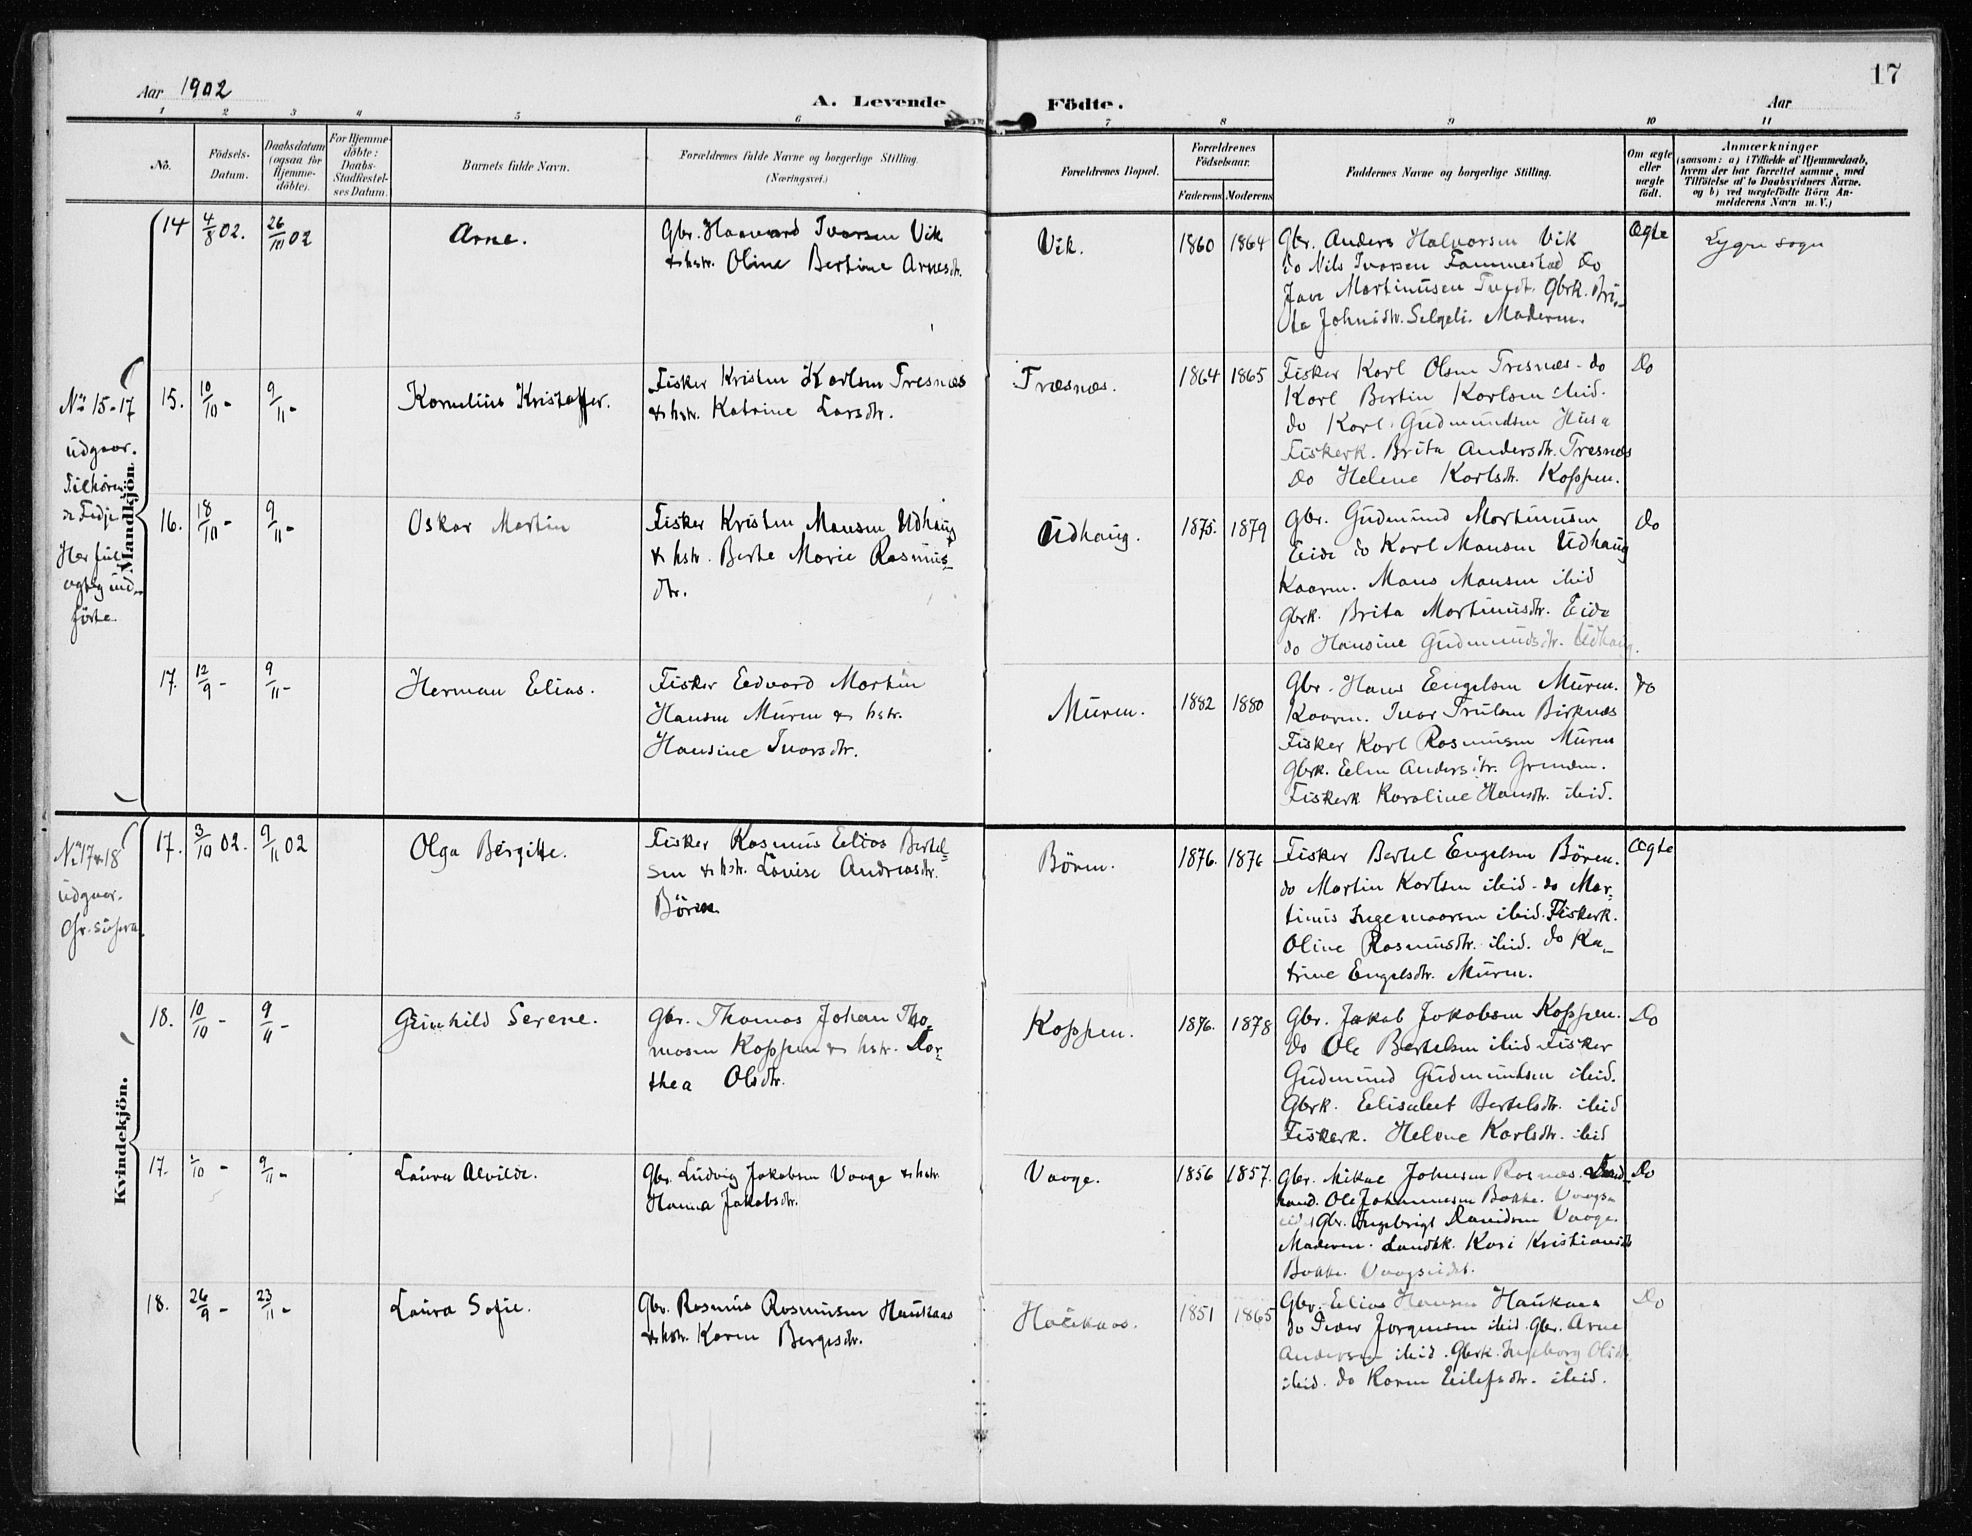 17
Aar 1902
A. Levende
Födte.
Aar
1 2 3 4 5 6 7 8 9 10 11
No.
Födsels-Datum.
Daabsdatum (ogsaa for Hjemme-döbte).
For Hjemme-döbte: Daabs-Stadfæstel-ses Datum.
Barnets fulde Navn.
Forældrenes fulde Navne og borgerlige Stilling. (Næringsvei.)
Forældrenes Bopæl.
Forældrenes Födselsaar.
Faderens
Moderens
Faddernes Navne og borgerlige Stilling.
Om ægte eller uægte födt.
Anmærkninger
(saasom: a) i Tilfælde af Hjemmedaab,
hvem der har forrettet samme, med
Tilföielse af to Daabsvidners Navne.
og b) ved uægtefödte Börn An-
melderens Navn m. V.)
Mandkjön.
14 4/8 02. 26/10 02 Arne.
Gbr. Haavard Ivarsen Vik
& hstr. Oline Bertine Arnesdtr.
Vik. 1860 1864
Gbr. Anders Halvorsen Vik
do Nils Ivarsen Fammestad do
Martinusen Tvedt. Gbrk. Bri-
ta Johnsdtr. Selgeli. Moderen.
Ægte
Lygre sogn
No 15-17
udgaar.
Tilhører
Fedje
Her
ind-
førte.
15. 10/10 - 9/11 - Kornelius Kristoffer.
Fisker Kristen Karlsen Tresnæs
& hstr. Katrine Larsdtr.
Træsnæs. 1864 1865
Fisker Karl Olsen Tresnæs - do
Karl Bertin Karlsen ibid.
do Karl Gudmundsen Husa
Fiskerk. Brita Andersdtr. Tresnæs
Do Helene Karlsdtr. Koppen.
Do
16. 18/10 - 9/11 - Oskar Martin
Fisker Kristen Monsen Udhaug
& hstr. Berte Marie Rasmus-
dtr.
Udhaug. 1875. 1879
Gbr. Gudmund Martinusen
Eide do Karl Monsen Udhaug
Kaarm. Mons Monsen ibid
Gbrk. Brita Martinusdtr. Eide
do Hansine Gudmundsdtr. Udhaug.
Do
17. 12/9 - 9/11 - Herman Elias.
Fisker Edvard Martin
Hansen Muren & hstr.
Hansine Ivarsdtr.
Muren. 1882 1880
Gbr. Hans Engelsen Muren.
Kaarm. Ivar Trulsen Birknæs
Fisker Karl Rasmusen Muren
Gbrk. Elen Andersdtr. Grenden.
Fiskerk Karoline Hansdtr. ibid.
Do
Kvindekjön.
No 17 & 18
udgaar.
Cfr. supra.
17. 3/10 02. 9/11 02 Olga Bergitte.
Fisker Rasmus Elias Bertel-
sen & hstr. Lovise Andreasdtr.
Børen
Børen. 1876. 1876
Fisker Bertel Engelsen Børen.
do Martin Karlsen ibid - do Mar-
tinus Ingemaarsen ibid. Fiskerk.
Oline Rasmusdtr. ibid. do Ka-
trine Engelsdtr. Muren.
Ægte
18. 10/10 - 9/11 - Gunhild Serene.
Gbr. Thomas Johan Tho-
masen Koppen & hstr. Dor-
thea Olsdtr.
Koppen. 1876. 1878
Gbr. Jakob Jokobsen Koppen.
Do Ole Bertelsen ibid Fisker
Gudmund Gudmundsen ibid.
Gbrk. Elisabet Bertelsdtr. ibid
Fiskerk. Helene Karlsdtr. ibid
Do
17. /10 - 9/11 - Laura Alvilde.
Gbr. Ludvig Jakobsen Vaage & hstr.
Hanna Jakobsdtr.
Vaage. 1856 1857.
Gbr. Mikal Johnsen Rosnæs. Land-
hand. Ole Johannesen Bakke. Vaags-
eidet Gbr. Ingebrigt Davidsen Vaage.
Moderen. Landhk. Kari Kristiansdtr
Bakke. Vaagseidet.
Do
18. 26/9 - 23/11 - Laura Sofie.
Gbr. Rasmus Rasmusen Haukaas
& hstr. Karen Bergesdtr.
Haukaas. 1851 1865
Gbr. Elias Hansen Haukaas
do Peder Jørgensen ibid. Gbr. Arne
Andersen ibid. Gbrk. Ingeborg Olsdtr.
ibid. do Karen Eilefsdtr. ibid.
Do